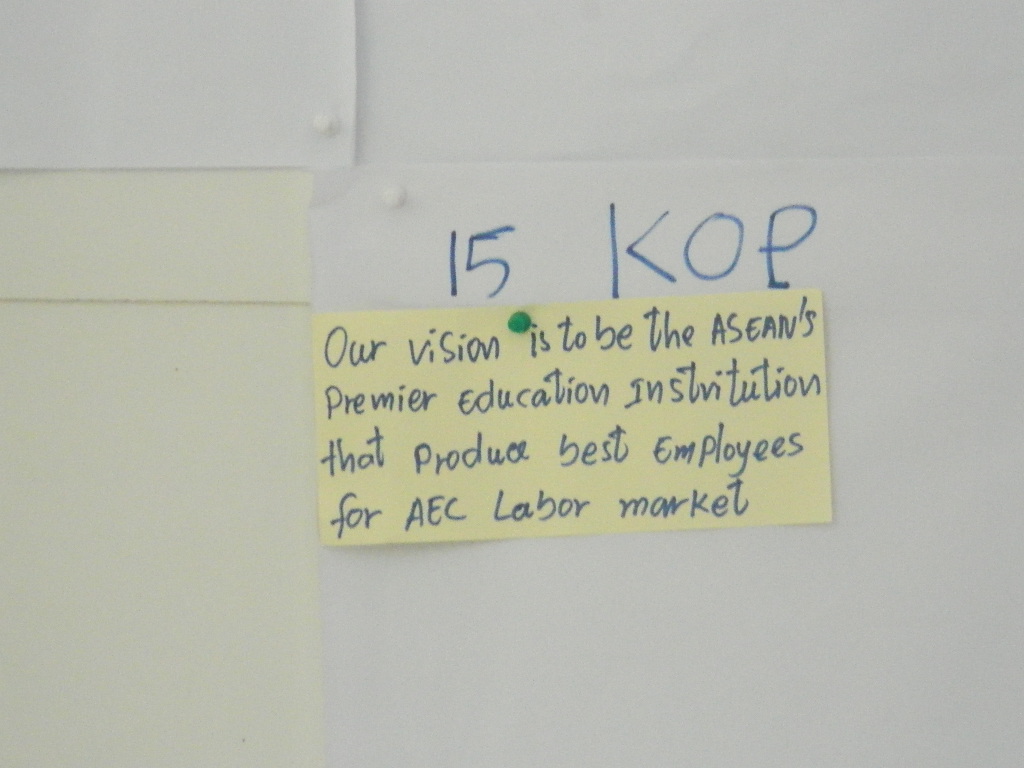 15 KOP
Our vision is to be the ASEAN's
Premier Education Instritution
that produce best Employees
for AEC Labor market